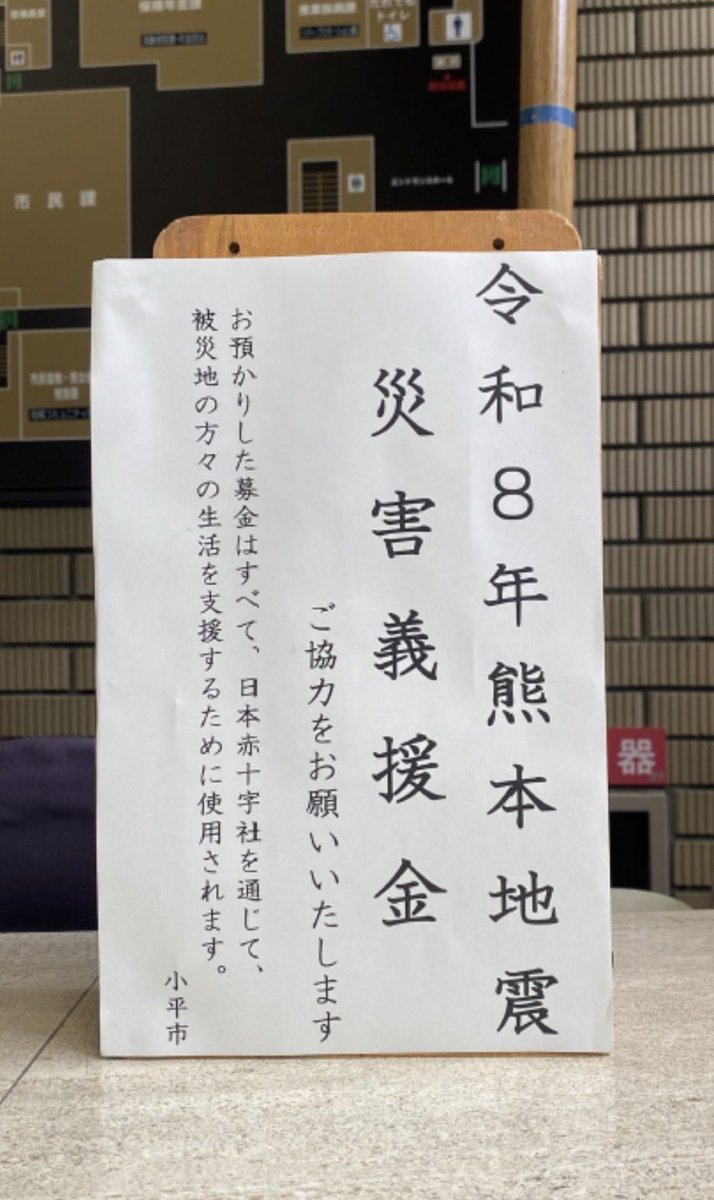 令和８年熊本地震
災害義援金
ご協力をお願いいたします
お預かりした募金はすべて、日本赤十字社を通じて、
被災地の方々の生活を支援するために使用されます。
小平市
保険年金課
トイレ
市民課
エントランスホール
器